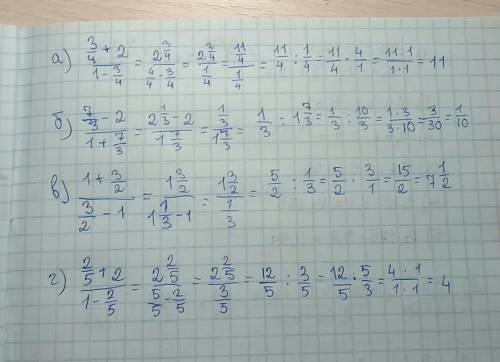 а) (3/4 + 2)/(1 - 3/4) = (2 3/4)/(4/4 - 3/4) = (2 3/4)/(1/4) = (11/4)/(1/4) = 11/4 : 1/4 = 11/4 · 4/1 = (11·1)/(1·1) = 11
б) (7/3 - 2)/(1 + 7/3) = (2 1/3 - 2)/(1 7/3) = (1/3)/(1 7/3) = 1/3 : 1 7/3 = 1/3 : 10/3 = (1·3)/(3·10) = 3/30 = 1/10
в) (1 + 3/2)/(3/2 - 1) = (1 3/2)/(1 1/3 - 1) = (1 3/2)/(1/3) = 5/2 : 1/3 = 5/2 · 3/1 = 15/2 = 7 1/2
г) (2/5 + 2)/(1 - 2/5) = (2 2/5)/(5/5 - 2/5) = (2 2/5)/(3/5) = 12/5 : 3/5 = 12/5 · 5/3 = (4 · 1)/(1 · 1) = 4